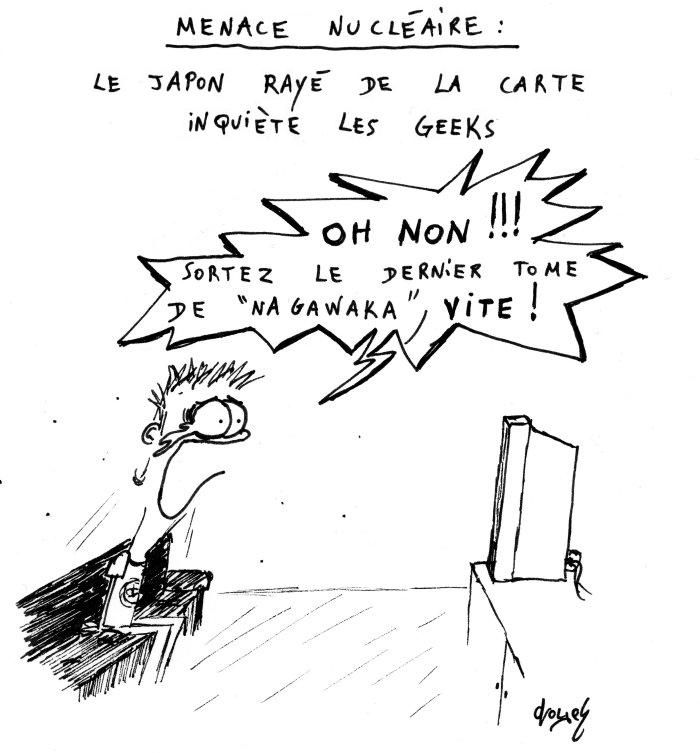 MENACE NUCLÉAIRE :
LE JAPON RAYÉ DE LA CARTE
INQUIÈTE LES GEEKS
OH NON !!!
SORTEZ LE DERNIER TOME
DE "NAGAWAKA" VITE !